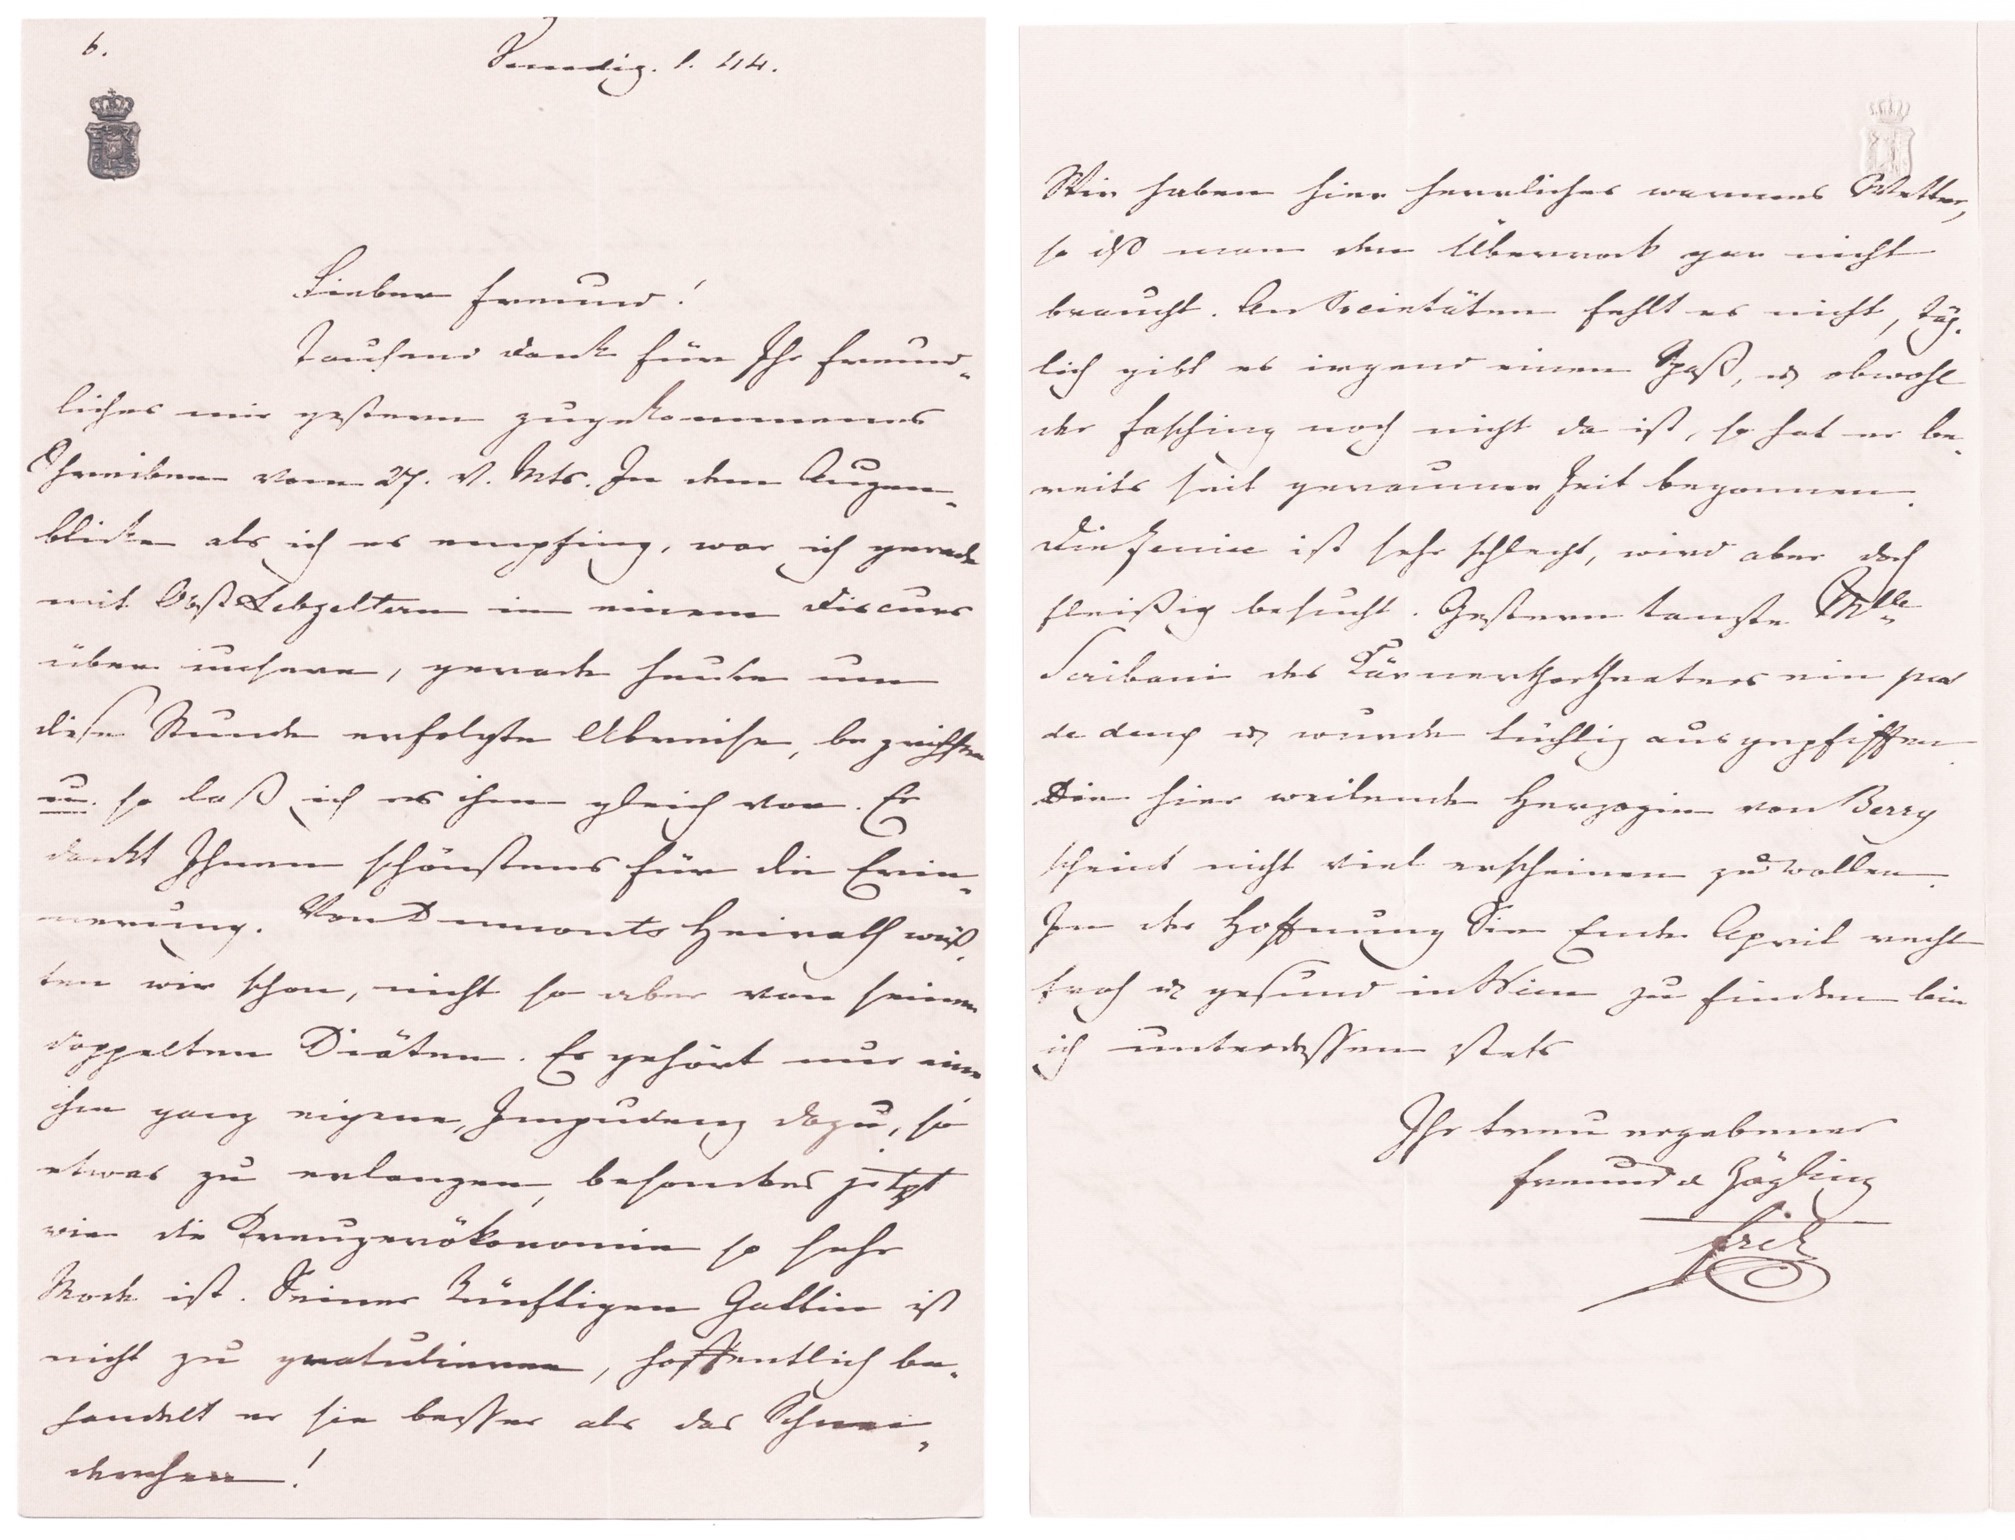 6.
Venedig. 1. 44.
Lieber Freund!
Tausend Dank für Ihr freund-
liches mir gestern zugekommenes
Schreiben vom 27. v. Mts. In dem Augen-
blicke als ich es empfing, war ich gerade
mit Obst Lebzeltern in einem Discurs
über unsere, gerade heute um
diese Stunde erfolgte Abreise, begriffen
u. so laß ich es ihm gleich vor. Er
dankt Ihnen schönstens für die Erin-
nerung. Von Dumonts Heirath wuß-
ten wir schon, nicht so aber von seinen
doppelten Diäten. Es gehört nur eine
ihm ganz eigene Impudenz dazu, so
etwas zu erlangen, besonders jetzt
wie die Kreuzerökonomie so sehr
Mode ist. Seiner künftigen Gattin ist
nicht zu gratulieren, hoffentlich be-
handelt er sie besser als das Schnei-
derchen!
Wir haben hier herrliches warmes Wetter,
so dß man den Überrock gar nicht
braucht. An Societäten fehlt es nicht, täg-
lich gibt es irgend einen Spaß, u obwohl
der Fasching noch nicht da ist, so hat er be-
reits seit geraumer Zeit begonnen.
Die Fenice ist sehr schlecht, wird aber doch
fleißig besucht. Gestern tanzte Mlle
Scribani des Kärnerthortheaters ein pas
de deux u wurde tüchtig ausgepfiffen.
Die hier weilende Herzogin von Berry
scheint nicht viel erscheinen zu wollen.
In der Hoffnung Sie Ende April recht
froh u gesund in Wien zu finden bin
ich unterdessen stets
Ihr treu ergebener
Freund u Zögling